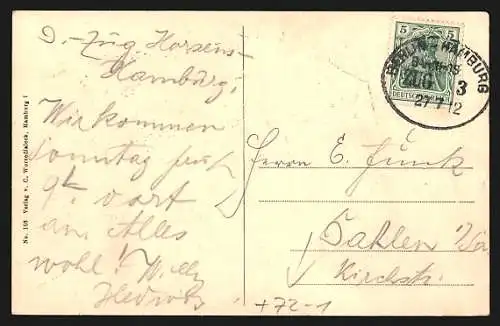 D-Zug Horsens-
Hamburg,
Wir kommen
Sonntag früh
9 dort
an Alles
wohl! Willy
Hedwig
No. 158 Verlag v. C. Worzedialeck, Hamburg 1
5 5
DEUTSCHES
BERLIN HAMBURG
ZUG 3
27 7 12
Herrn E. Funk
Dahlen i/Sa
Kirchstr.
+72-1